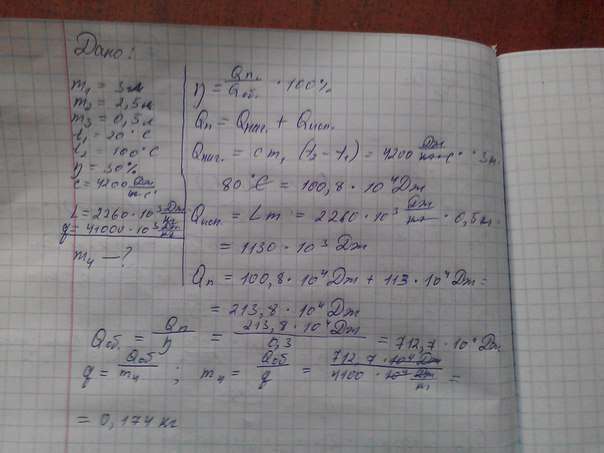 Дано:
m₁ = 3л
m₂ = 2,5л
m₃ = 0,5л
t₁ = 20°C
t₂ = 100°C
η = 30%
c = 4200 Дж/кг·°C
L = 2260 · 10³ Дж/кг
q = 41000 · 10³ Дж/кг
m₄ — ?
η = Qп. / Qоб. · 100%
Qп = Qнаг. + Qисп.
Qнаг. = cm₁ (t₂ − t₁) = 4200 Дж/кг·°C · 3кг ·
80°C = 100,8 · 10⁴ Дж
Qисп. = Lm = 2260 · 10³ Дж/кг · 0,5кг =
= 1130 · 10³ Дж
Qп = 100,8 · 10⁴ Дж + 113 · 10⁴ Дж =
= 213,8 · 10⁴ Дж
Qоб. = Qп / η = 213,8 · 10⁴ Дж / 0,3 = 712,7 · 10⁴ Дж
q = Qоб / m₄ ; m₄ = Qоб / q = 712,7 · 10⁴ Дж / 4100 · 10⁴ Дж/кг =
= 0,174 кг